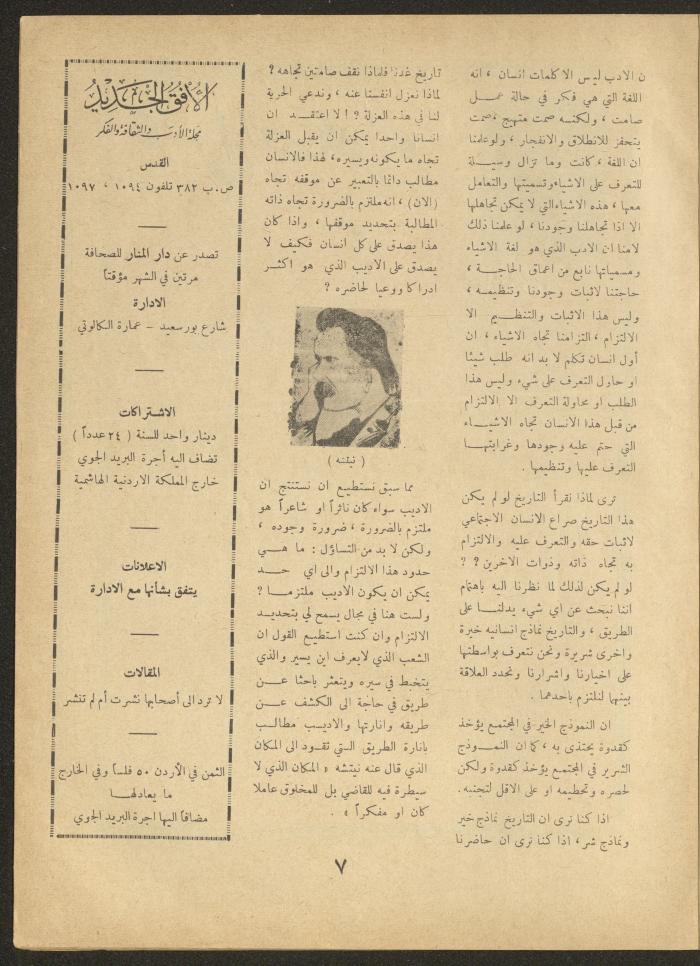 ن الادب ليس الا كلمات انسان ، انه
اللغة التي هي فكر في حالة عمل
صامت ، ولكنه صمت متهيج ، صمت
يتحفز للانطلاق والانفجار ، ولو علمنا
ان اللغة ، كانت وما تزال وسيلة
للتعرف على الاشياء وتسميتها والتعامل
معها ، هذه الاشياء التي لا يمكن تجاهلها
الا اذا تجاهلنا وجودنا ، لو علمنا ذلك
لامنا ان الادب الذي هو لغة الاشياء
ومسمياتها نابع من اعماق الحاجة ،
حاجتنا لاثبات وجودنا وتنظيمه ،
وليس هذا الاثبات والتنظيم الا
الالتزام ، التزامنا تجاه الاشياء ، ان
أول انسان تكلم لا بد انه طلب شيئا
او حاول التعرف على شيء وليس هذا
الطلب او محاولة التعرف الا الالتزام
من قبل هذا الانسان تجاه الاشياء
التي حتم عليه وجودها وغرابتها
التعرف عليها وتنظيمها .
ترى لماذا نقرأ التاريخ لو لم يكن
هذا التاريخ صراع الانسان الاجتماعي
لاثبات حقه والتعرف عليه والالتزام
به تجاه ذاته وذوات الاخرين ? ?
لو لم يكن لذلك لما نظرنا اليه باهتمام
اننا نبحث عن اي شيء يدلنا على
الطريق ، والتاريخ نماذج انسانيه خيرة
واخرى شريرة ونحن نتعرف بواسطتها
على اخيارنا واشرارنا ونحدد العلاقة
بينها لنلتزم باحدهما .
ان النموذج الخير في المجتمع يؤخذ
كقدوة يحتذى به ، كما ان النموذج
الشرير في المجتمع يؤخذ كقدوة ولكن
لحصره وتحطيمه او على الاقل لتجنبه.
اذا كنا نرى ان التاريخ نماذج خير
ونماذج شر ، اذا كنا نرى ان حاضرنا
تاريخ غدنا فلماذا نقف صامتين تجاهه ?
لماذا نعزل انفسنا عنه ، وندعي الحرية
لنا في هذه العزلة ? ! لا اعتقد ان
انسانا واحدا يمكن ان يقبل العزلة
تجاه ما يكونه ويسيره ، لهذا فالانسان
مطالب دائما بالتعبير عن موقفه تجاه
(الان) ، انه ملتزم بالضرورة تجاه ذاته
المطالبة بتحديد موقفها ، واذا كان
هذا يصدق على كل انسان فكيف لا
يصدق على الاديب الذي هو اكثر
ادراكا ووعيا لحاضره ?
( نيتشه )
مما سبق نستطيع ان نستنتج ان
الاديب سواء كان ناثراً او شاعراً هو
ملتزم بالضرورة ، ضرورة وجوده ،
ولكن لا بد من التساؤل : ما هي
حدود هذا الالتزام والى اي حد
يمكن ان يكون الاديب ملتزما ?
ولست هنا في مجال يسمح لي بتحديد
الالتزام وان كنت استطيع القول ان
الشعب الذي لا يعرف اين يسير والذي
يتخبط في سيره ويتعثر باحثا عن
طريق في حاجة الى الكشف عن
طريقه وانارتها والاديب مطالب
بانارة الطريق التي تقود الى المكان
الذي قال عنه نيتشه « المكان الذي لا
سيطرة فيه للقاضي بل للمخلوق عاملا
كان او مفكراً » .
الأفق الجديد
مجلة الأدب والثقافة والفكر
القدس
ص.ب ٣٨٢ تلفون ١٠٩٤ ، ١٠٩٧
تصدر عن دار المنار للصحافة
مرتين في الشهر مؤقتاً
الادارة
شارع بور سعيد – عمارة الكالوتي
الاشتراكات
دينار واحد للسنة ( ٢٤ عدداً )
تضاف اليه أجرة البريد الجوي
خارج المملكة الاردنية الهاشمية
الاعلانات
يتفق بشأنها مع الادارة
المقالات
لا ترد الى أصحابها نشرت أم لم تنشر
الثمن في الأردن ٥٠ فلساً وفي الخارج
ما يعادلها
مضافاً اليها اجرة البريد الجوي
٧